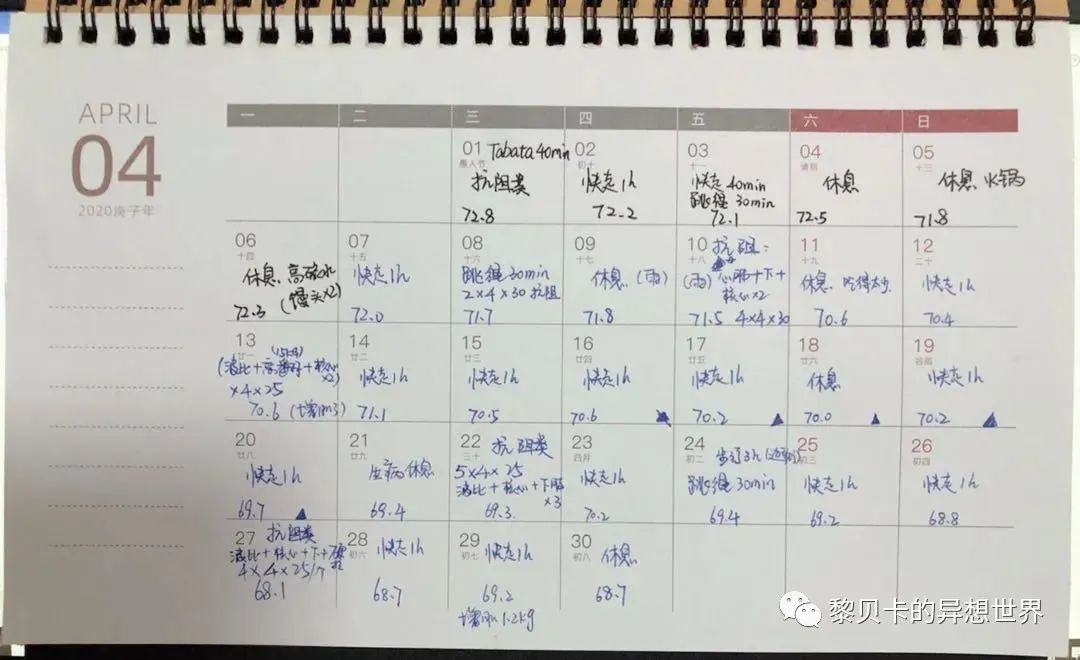 APRIL
04
2020庚子年
一 二 三 四 五 六 日
01 Tabata 40min
愚人节
抗阻类
72.8
02
初十
快走1h
72.2
03
十一
快走 40min
跳绳 30min
72.1
04
清明
休息
72.5
05
十三
休息 火锅
71.8
06
十四
休息、高碳水
(馒头×2)
72.3
07
十五
快走1h
72.0
08
十六
跳绳 30min
2×4×30 抗阻
71.7
09
十七
休息 (雨)
71.8
10 抗阻:
十八
(雨)
核心×2
71.5 4×4×30
11
十九
休息、吃得太少
70.6
12
二十
快走1h
70.4
13
廿一
×2)
×4×25
70.6 (增肌)
14
廿二
快走1h
71.1
15
廿三
快走1h
70.5
16
廿四
快走1h
70.6
17
廿五
快走1h
70.2
18
廿六
休息
70.0
19
谷雨
快走1h
70.2
20
廿八
快走1h
69.7
21
廿九
生病 休息
69.4
22 抗阻类
三十
5×4×25
波比+核心+下肢
×3
69.3
23
四月
快走1h
70.2
24
初二
步行3h
跳绳 30min
69.4
25
初三
快走1h
69.2
26
初四
快走1h
68.8
27 抗阻类
波比+核心+下+
4×4×25/个
68.1
28
初六
快走1h
68.7
29
初七
快走1h
69.2
增肌1.2kg
30
初八
休息
68.7
黎贝卡的异想世界